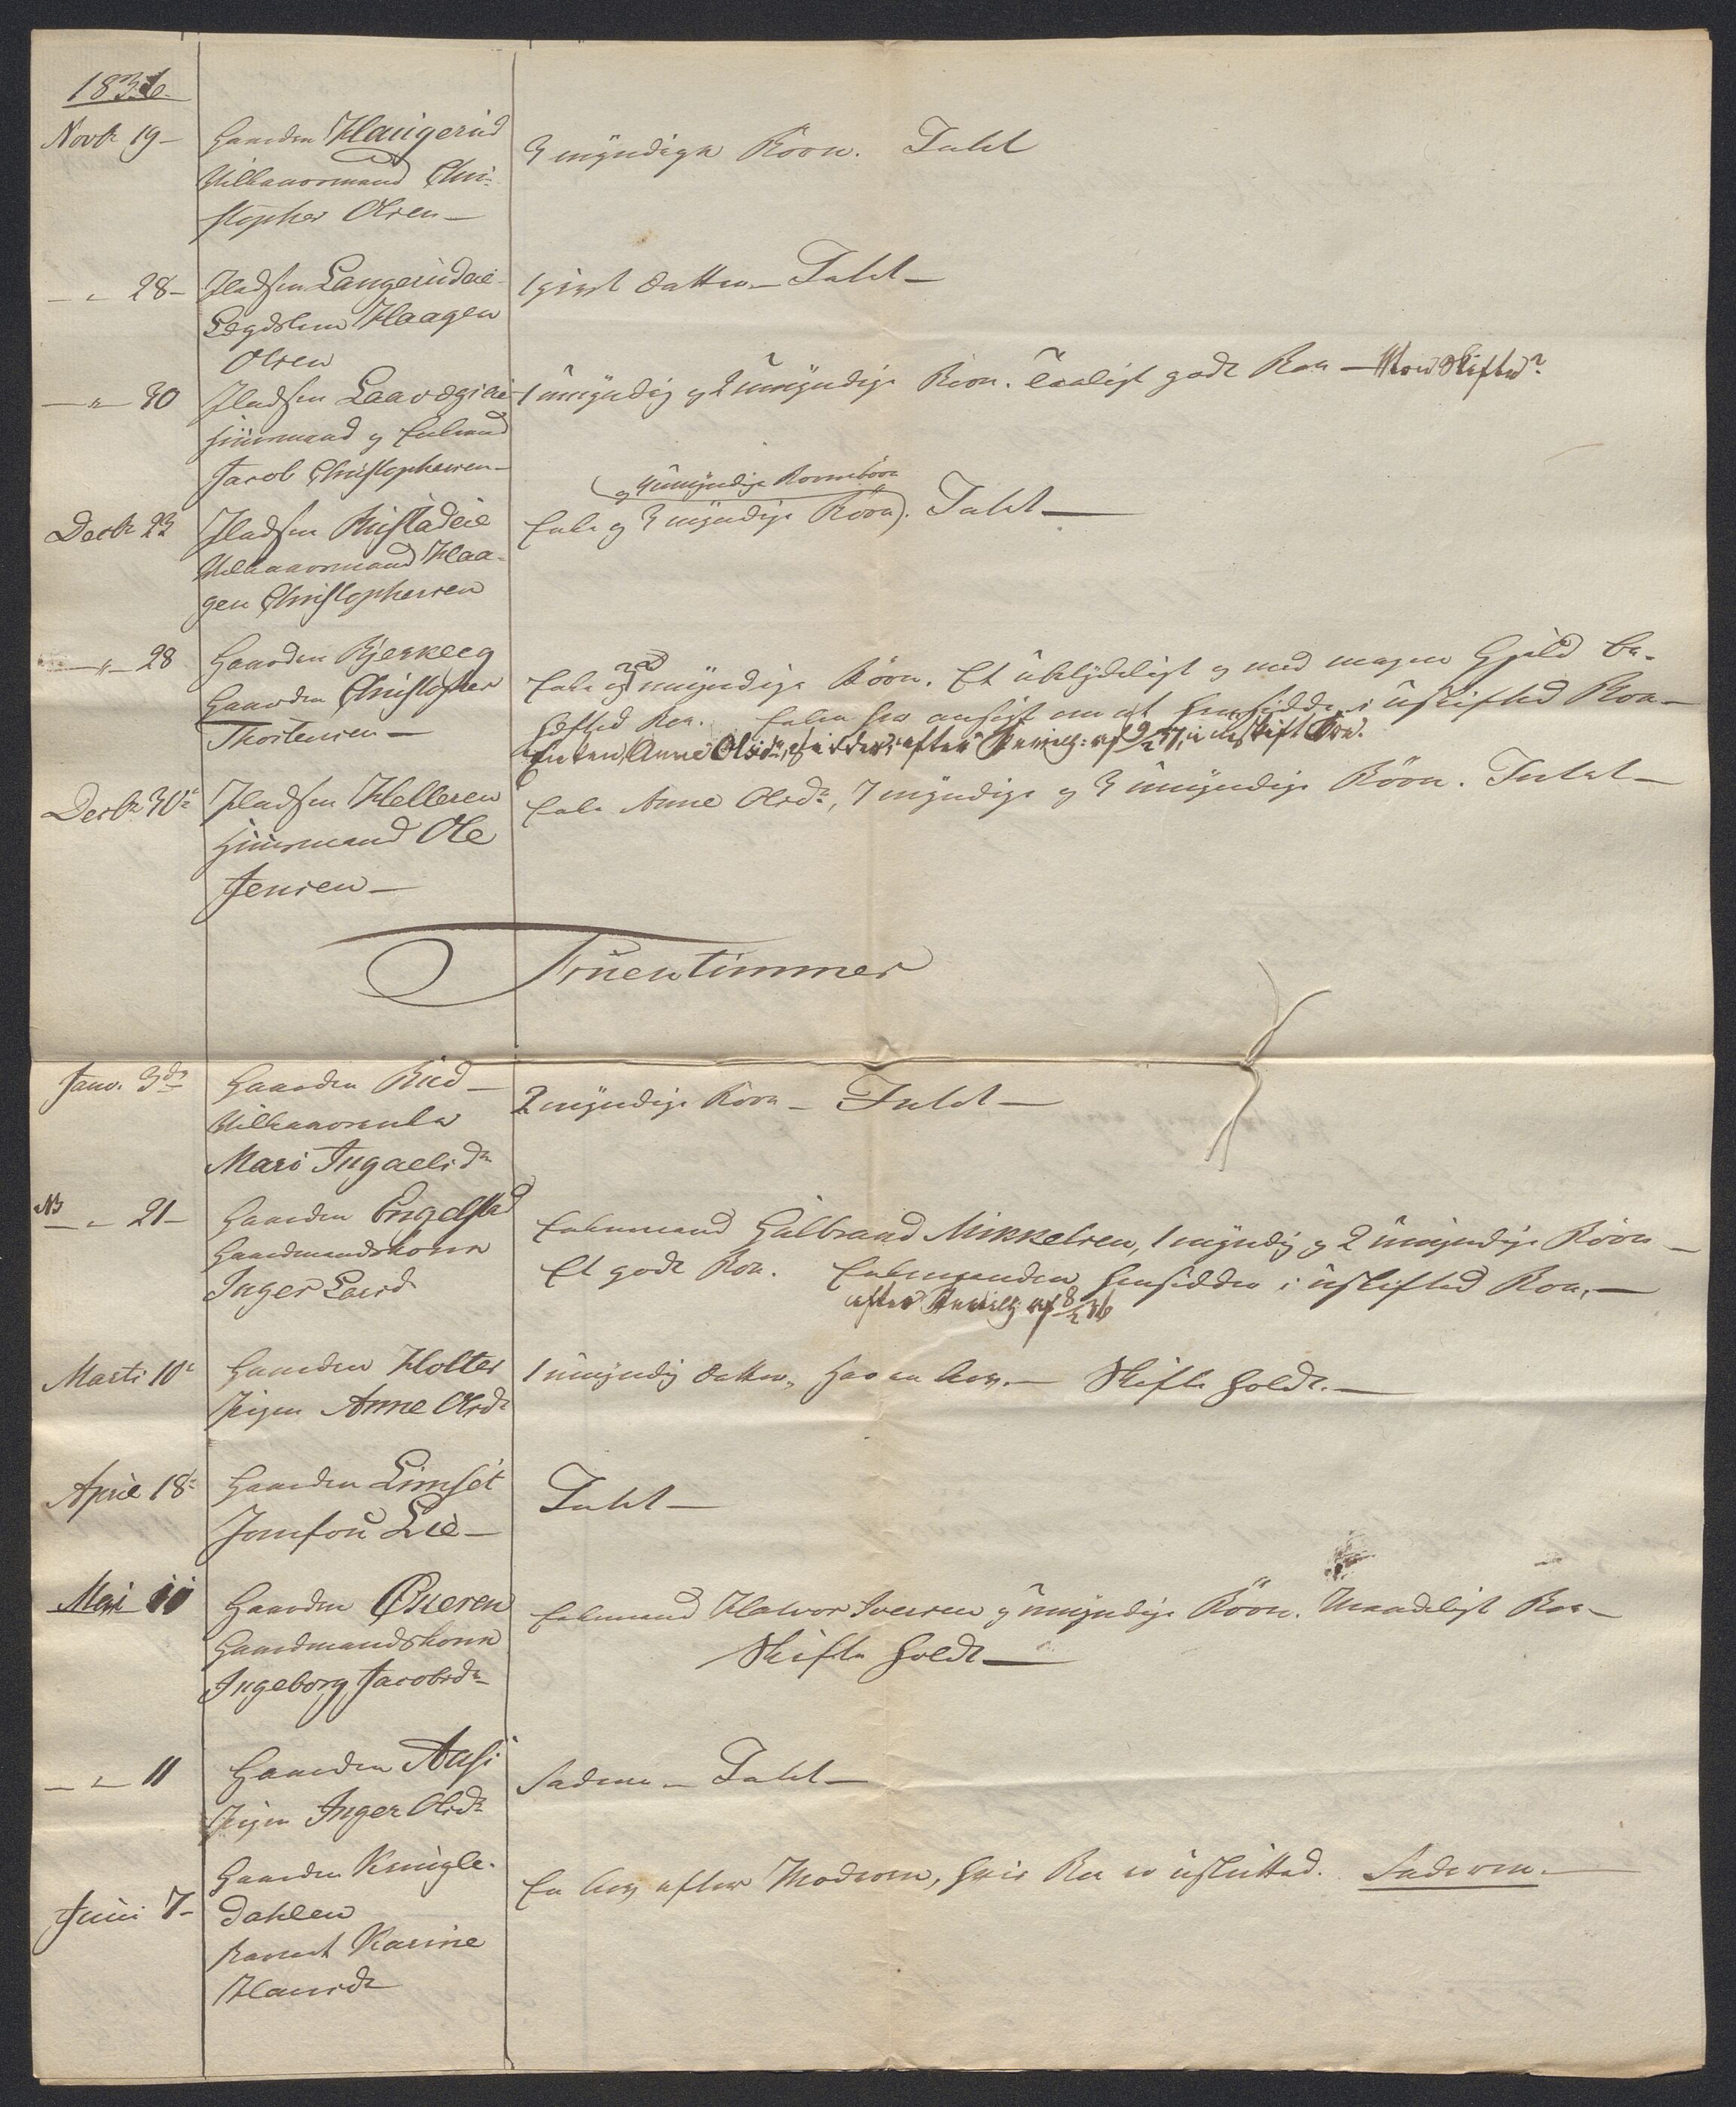 1836
Novbr 19 –
Gaarden Haugerud
Vilkaarsmand Chri-
stopher Olsen –
3 myndige Börn. Intet
– " – 28 –
Pladsen Langerudeie
Lægdslem Haagen
Olsen
1 gift Datter – Intet –
– " – 30
Pladsen
Huusmand og Enkemand
Jacob Christophersen –
1 myndig og 2 umyndige Börn. godt Boe – Skifted?
Decbr 23
Pladsen Rustadeie
Vilkaarsmand Haa-
gen Christophersen
og umyndige Børnebörn
Enke og 3 myndige Börn. Intet –
– " – 28
Gaarden Bjerkeeg
Gaarden Christopher
Thorstensen –
Enke og myndige Börn. Et ubetydeligt og med megen Gjeld be-
heftet Boe. Enken har ansögt om at hensidde i uskiftet Boe –
Enken, Anne Olsdr, efter Bevilg: af i uskiftet Boe.
Decbr 30te
Pladsen Helleren
Huusmand Ole
Jensen –
Enke Anne Olsdr, 7 myndige og 3 umyndige Börn. Intet –
Fruentimmer
Janv. 3die
Gaarden Rud –
Vilkaarsenke
Mari Ingaelsdr
2 myndige Börn – Intet –
NB – " – 21 –
Gaarden Engelstad
Gaardmandskone
Inger Larsd.
Enkemand Gulbrand Mikkelsen, 1 myndig og 2 umyndige Börn –
Et godt Boe. Enkemanden hensidder i uskiftet Boe, –
efter Bevilg: af 8/2 36
Marti 10de
Gaarden Holter
Pigen Anne Olsdr
1 umyndig Datter, har en Arv. – Skifte holdt. –
April 18de
Gaarden Limset
Jomfru Lie –
Intet –
Mai 11
Gaarden Qveren
Gaardmandskone
Ingeborg Jacobsdr
Enkemand Halvor Iversen og umyndige Börn. Maadeligt Boe –
Skifte holdt –
– " – 11
Gaarden Aasi
Pigen Inger Olsdr
Faderen – Intet –
Juni 7 –
Gaarden Kringle-
dahlen
Barnet Karine
Hansdr
En Arv efter Moderen, hvis Boe er usluttet. Faderen. –